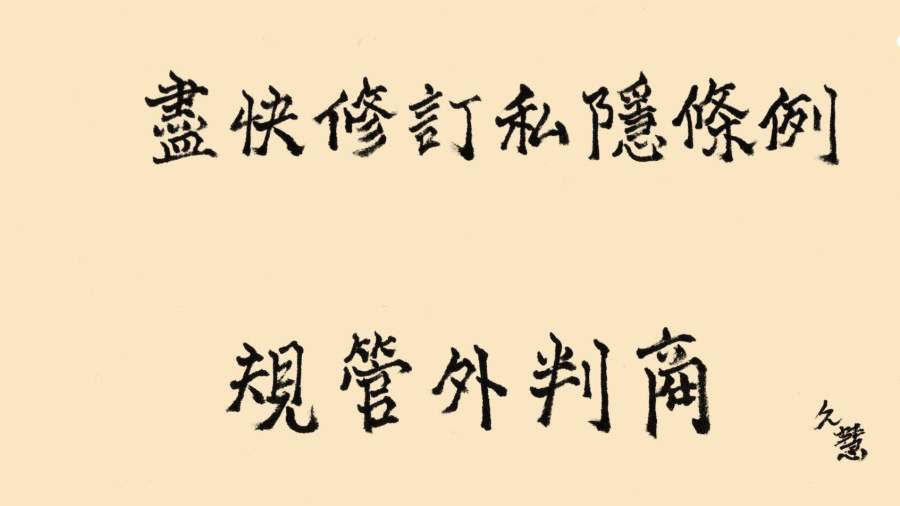 盡快修訂私隱條例
規管外判商
久慧